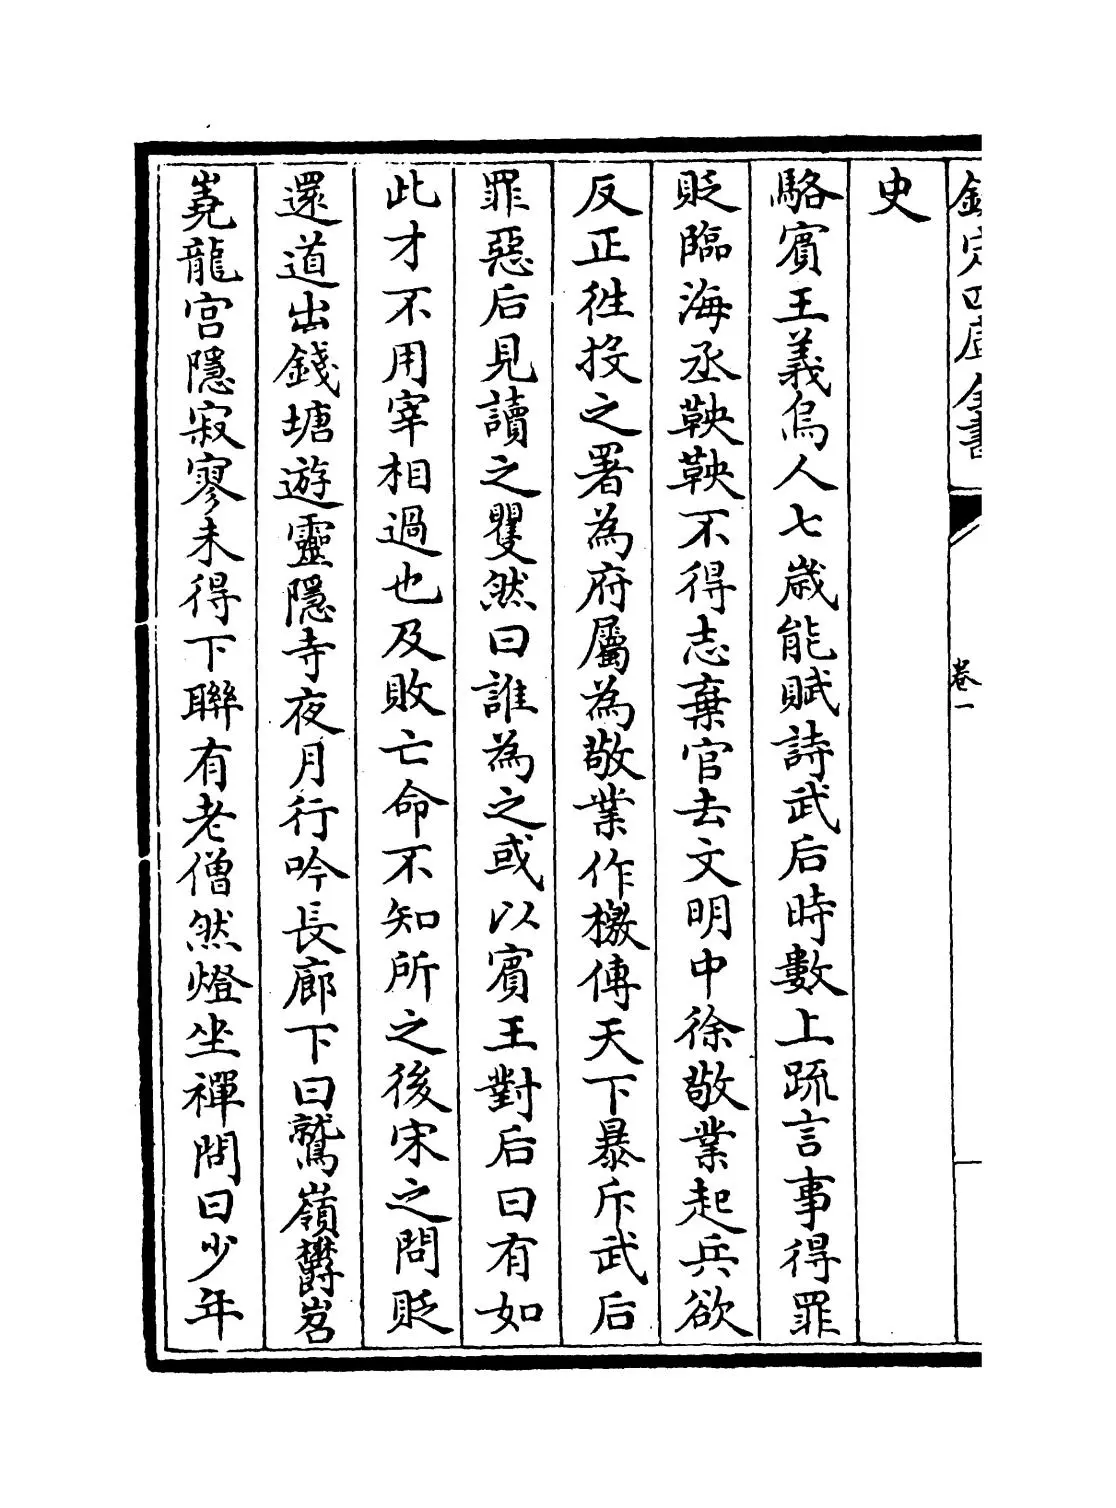 欽定四庫全書
卷一
史
駱賓王義烏人七歲能賦詩武后時數上疏言事得罪
貶臨海丞鞅鞅不得志棄官去文明中徐敬業起兵欲
反正徃投之署為府屬為敬業作檄傳天下暴斥武后
罪惡后見讀之矍然曰誰為之或以賓王對后曰有如
此才不用宰相過也及敗亡命不知所之後宋之問貶
還道出錢塘遊靈隱寺夜月行吟長廊下曰鷲嶺鬱岧
嶤龍宫隱寂寥未得下聯有老僧然燈坐禪問曰少年